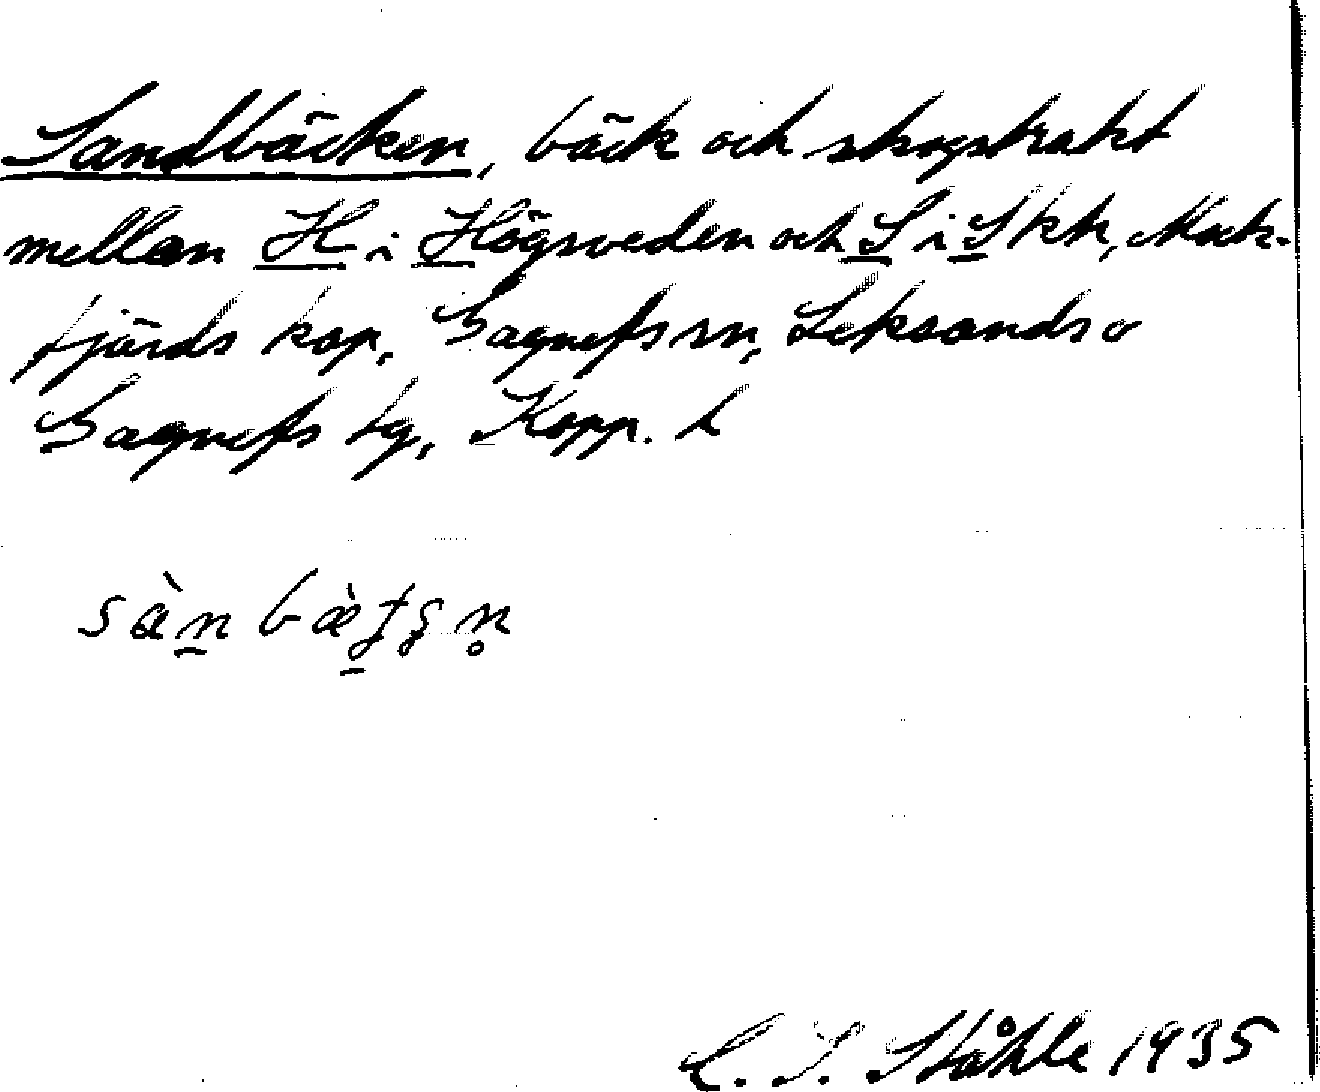 Sandbäcken, bäck och skogstrakt
mellan H i Högsveden och S i Skh, Mock-
fjärds kap, Gagnefs sn, Leksands o
Gagnefs tg, Kopp. l
C. I. Ståhle 1935